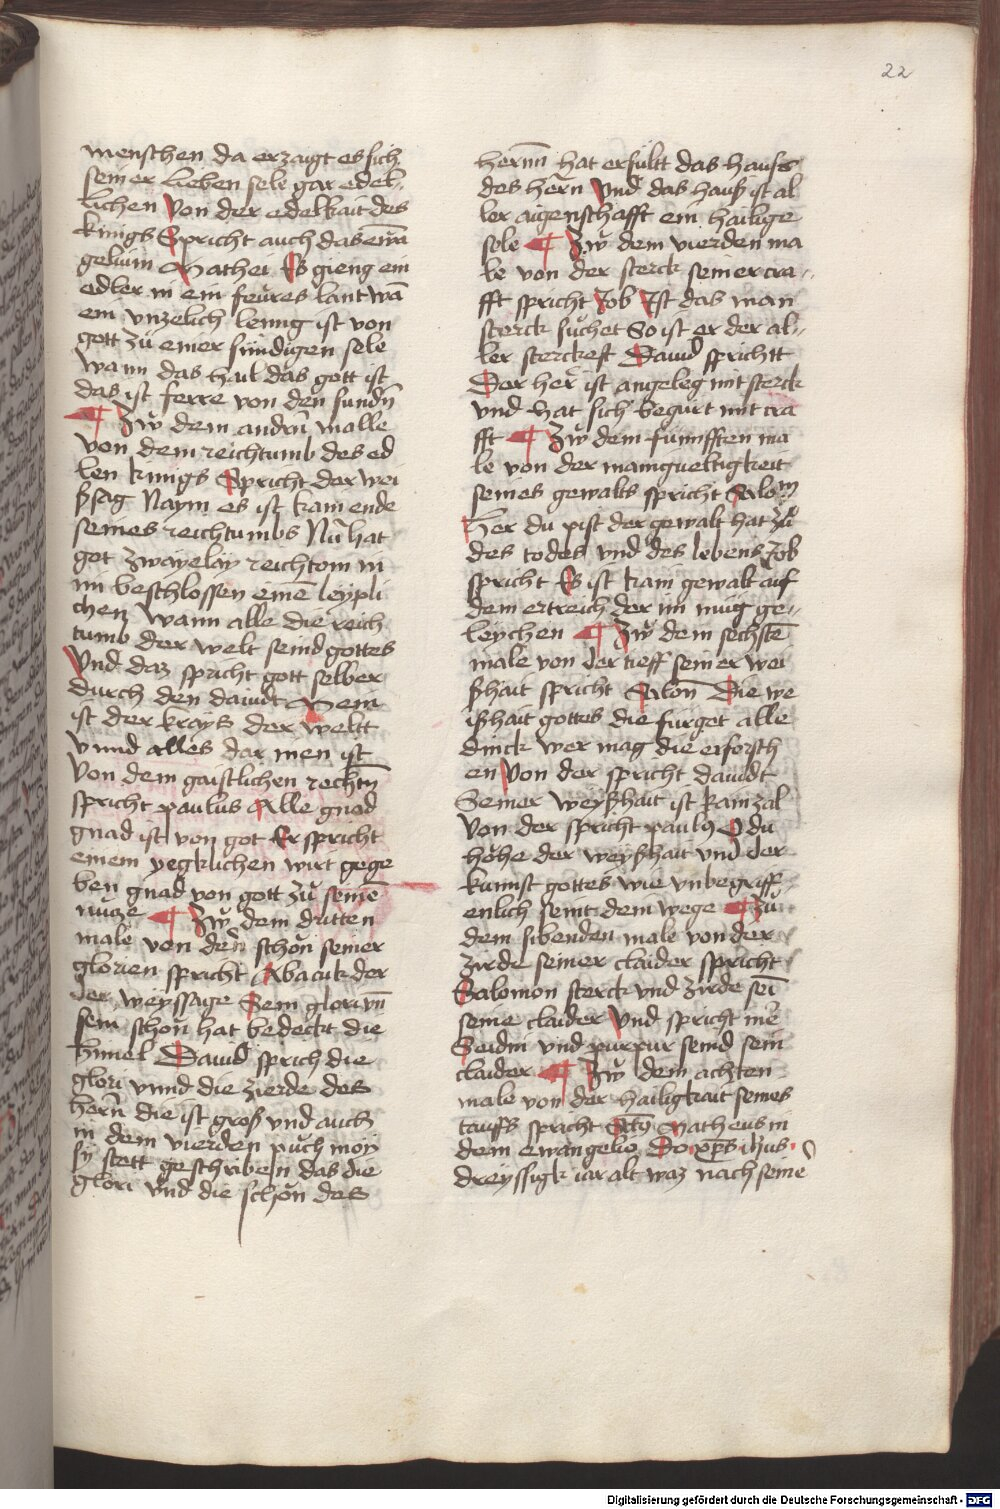 22
menschen da erzaigt es sich
seiner lieben sele gar edel„
lichen Von der edelkait des
kúnigs Spricht auch das ewā
gelium Mathei Es gieng ein
edler in ein feŭres lant wā
ein vnzelich lenng ist von
gott zŭ einer súndigen sele
wann das hail das gott ist
das ist ferre von den sundn̄
¶ Zŭ dem andrn̄ malle
von dem reichtumb des ed
len kúnigs Spricht der wei
ßsag Naym es ist kain ende
seines reichtumbs Nŭ hat
got zwayelay reichtom in
im beschlossen einē leypli
chen wann alle die reich
tumb der welt seind gottes
Vnd daz spricht gott selber
durch den dauidt Mein
ist der krayß der weltt
vnnd alles dar inen ist
Von dem gaistlichen rechtn̄
spricht paulus Alle gnad
gnad ist von got Er spricht
einem yegklichen wirt gege
ben gnad von gott zŭ seinē
nŭtze ¶ Zŭ dem dritten
male von der schön seiner
glorien spricht Abacuk der
der weyssage Sein glori vn̄
sein schön hat bedeckt die
himel Dauid sprich die
glori vnnd die zierde des
hern̄ die ist groß vnd auch
in dem vierden pŭch moy
sy stett geschriben das die
glori vnd die schön des
hernn hat erfultt das hauss
des hern̄ Vnd das hauß ist al
ler aigenschafft ein hailige
sele ¶ Zŭ dem vierden ma
le von der sterck seiner cra„
fft spricht Job Ist das man
sterck sŭchet So ist er der al„
ler sterckest Dauid sprichtt
Der her ist angeleg mit sterck
vnd hat sich begurt mit cra
fft ¶ Zŭ dem fúnnfften ma
le von der mannigueltigkeit
seines gewalts spricht Salom
Her du pist der gewalt hat zŭ
des todes vnd des lebens Job
spricht Es ist kain gewalt auf
dem ertreich der im múg ge„
leychen ¶ Zŭ dem sechstē
male von der tieff seiner wei
ßhait spricht Salon̄ Die we
ißhait gottes die fúrget alle
dinck wer mag die erforsch
en Von der spricht dauidt
Seiner weyßhait ist kain zal
Von der spricht paulꝯ O du
höhe der weyßhait vnd der
kunnst gottes wie vnbegriff„
enlich seint dem wege ¶ Zŭ
dem sibenden male von der
zirde seiner claider spricht
Salomon sterck vnd zirde sei
seine claider Vnd spricht mē
Seidin vnd purpur seind sein
claider ¶ Zŭ dem achten
male von der hailigkait seines
tauffs spricht Matheus in
dem ewangelio Do xp̄s ih̄us
dreyssigk iar alt waz nach seine
Digitalisierung gefördert durch die Deutsche Forschungsgemeinschaft - DFG